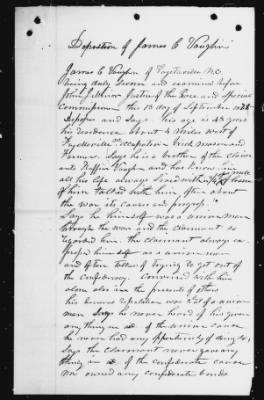 Deposition of James C Vaughn
James C Vaughn of Fayetteville N.C.
being duly sworn and examined before
John J Minor Justice of the Peace and Special
Commissioner this 13 day of September 187
Deposes and Says his age is 43 years
his residence about 4 miles west of
Fayetteville occupation brick mason and
Farmer. Says he is a brother of the claim
ants Vaughn and has known
all his life always lived within mile
of him talked with him often about
the war its causes and progress
Says he himself was a union man
through the war and the claimant so
regarded him. the claimant always ex
pressed himself as a union man
and often talked of trying to get out of
the Confederacy. Conversed with him
alone also in the presence of others
his general reputation was that of a union
man Says he never heard of his given
any thing in aid of the union cause
he never had any oppertunity of doing so
Says the Claimant never gave any
thing in aid of the confederate cause
nor owned any confederate bonds